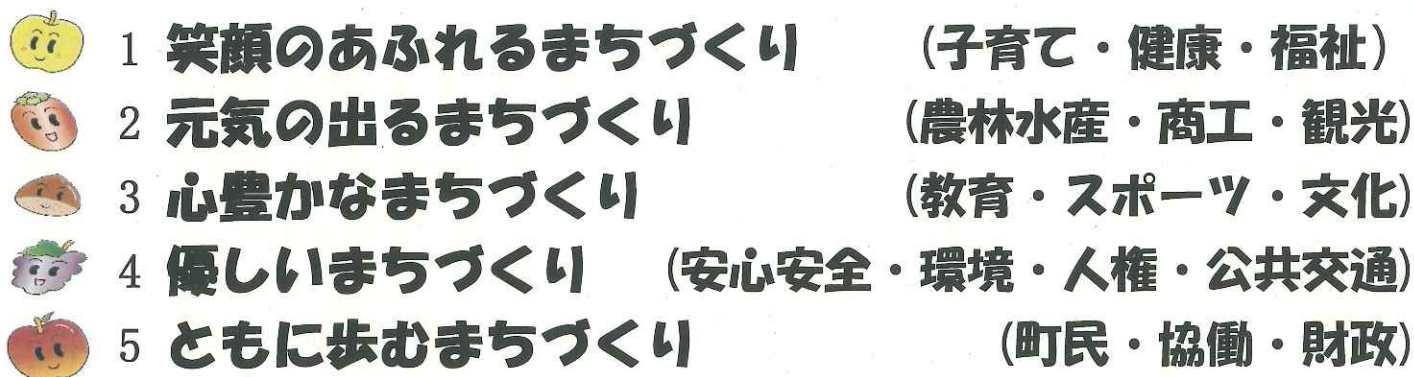 1 笑顔のあふれるまちづくり (子育て・健康・福祉)
2 元気の出るまちづくり (農林水産・商工・観光)
3 心豊かなまちづくり (教育・スポーツ・文化)
4 優しいまちづくり (安心安全・環境・人権・公共交通)
5 ともに歩むまちづくり (町民・協働・財政)